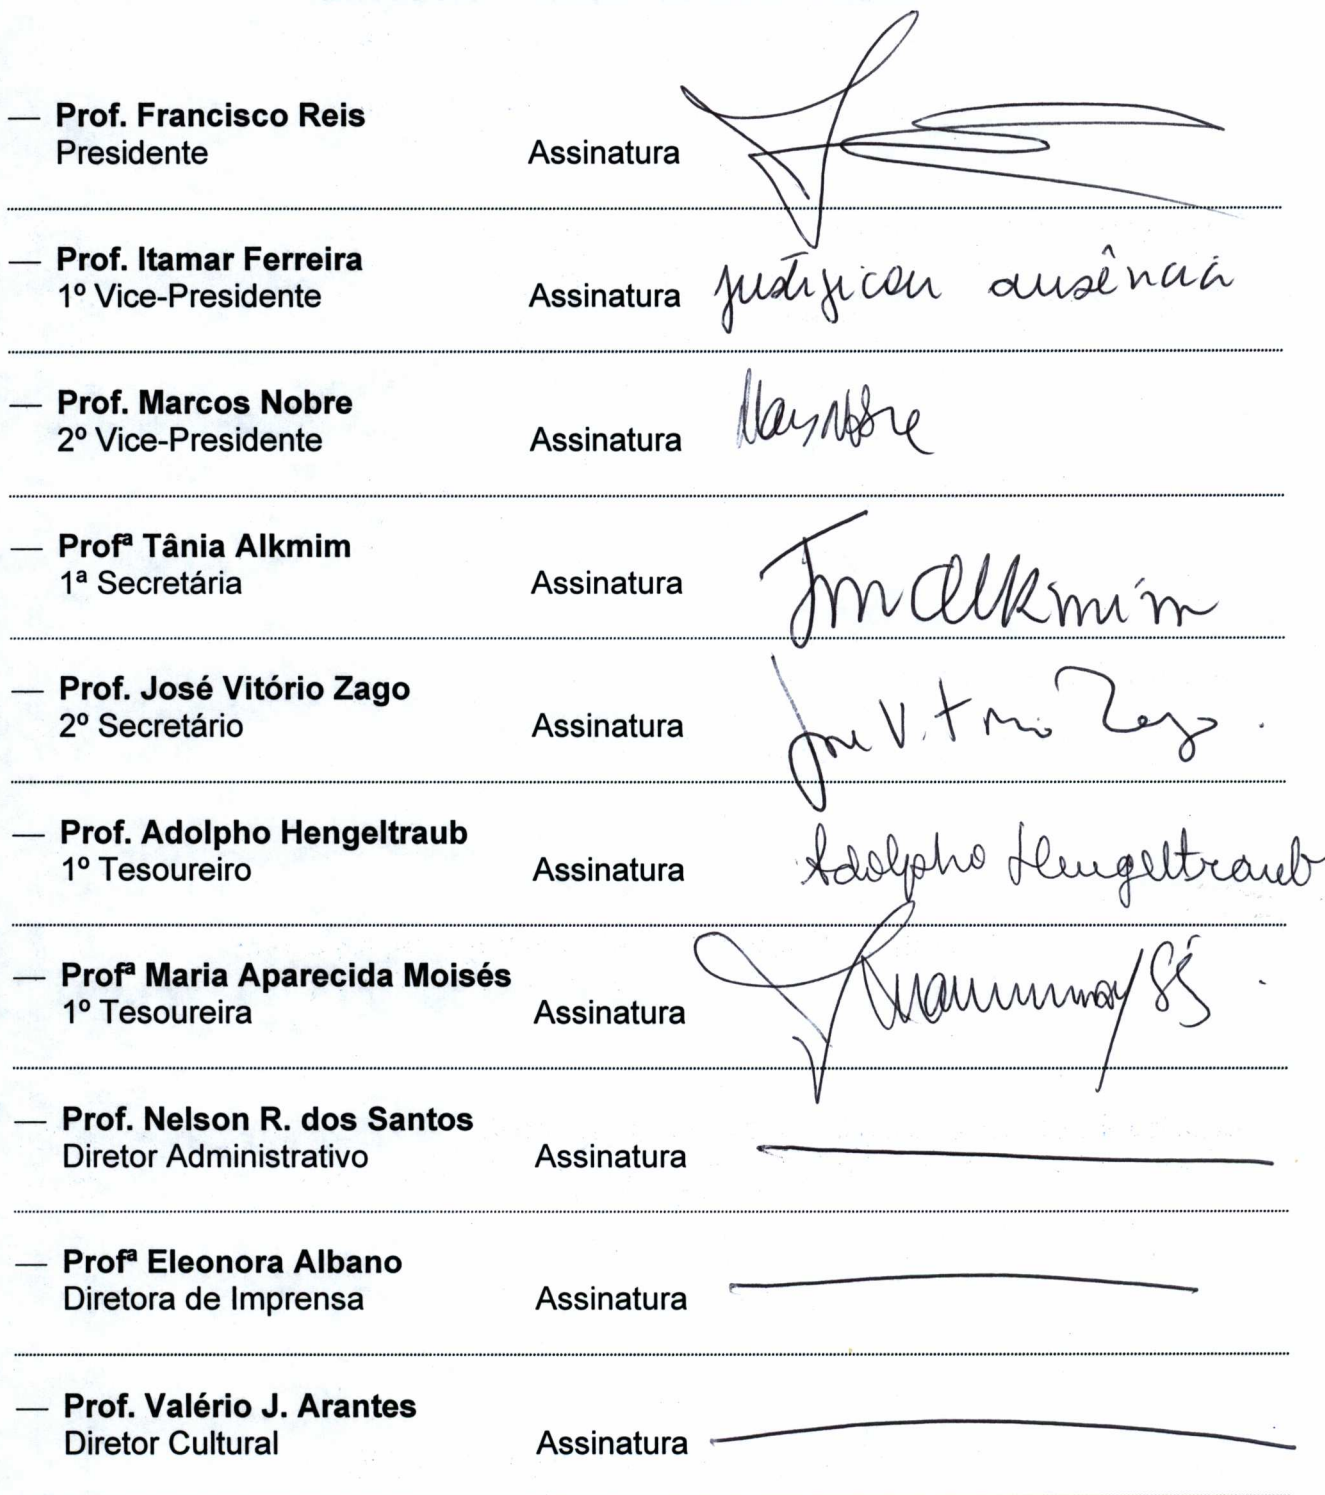 — Prof. Francisco Reis
Presidente Assinatura
— Prof. Itamar Ferreira
1º Vice-Presidente Assinatura justificou ausência
— Prof. Marcos Nobre
2º Vice-Presidente Assinatura
— Profª Tânia Alkmim
1ª Secretária Assinatura Alkmim
— Prof. José Vitório Zago
2º Secretário Assinatura José Vitório Zago.
— Prof. Adolpho Hengeltraub
1º Tesoureiro Assinatura Adolpho Hengeltraub
— Profª Maria Aparecida Moisés
1º Tesoureira Assinatura
— Prof. Nelson R. dos Santos
Diretor Administrativo Assinatura
— Profª Eleonora Albano
Diretora de Imprensa Assinatura
— Prof. Valério J. Arantes
Diretor Cultural Assinatura